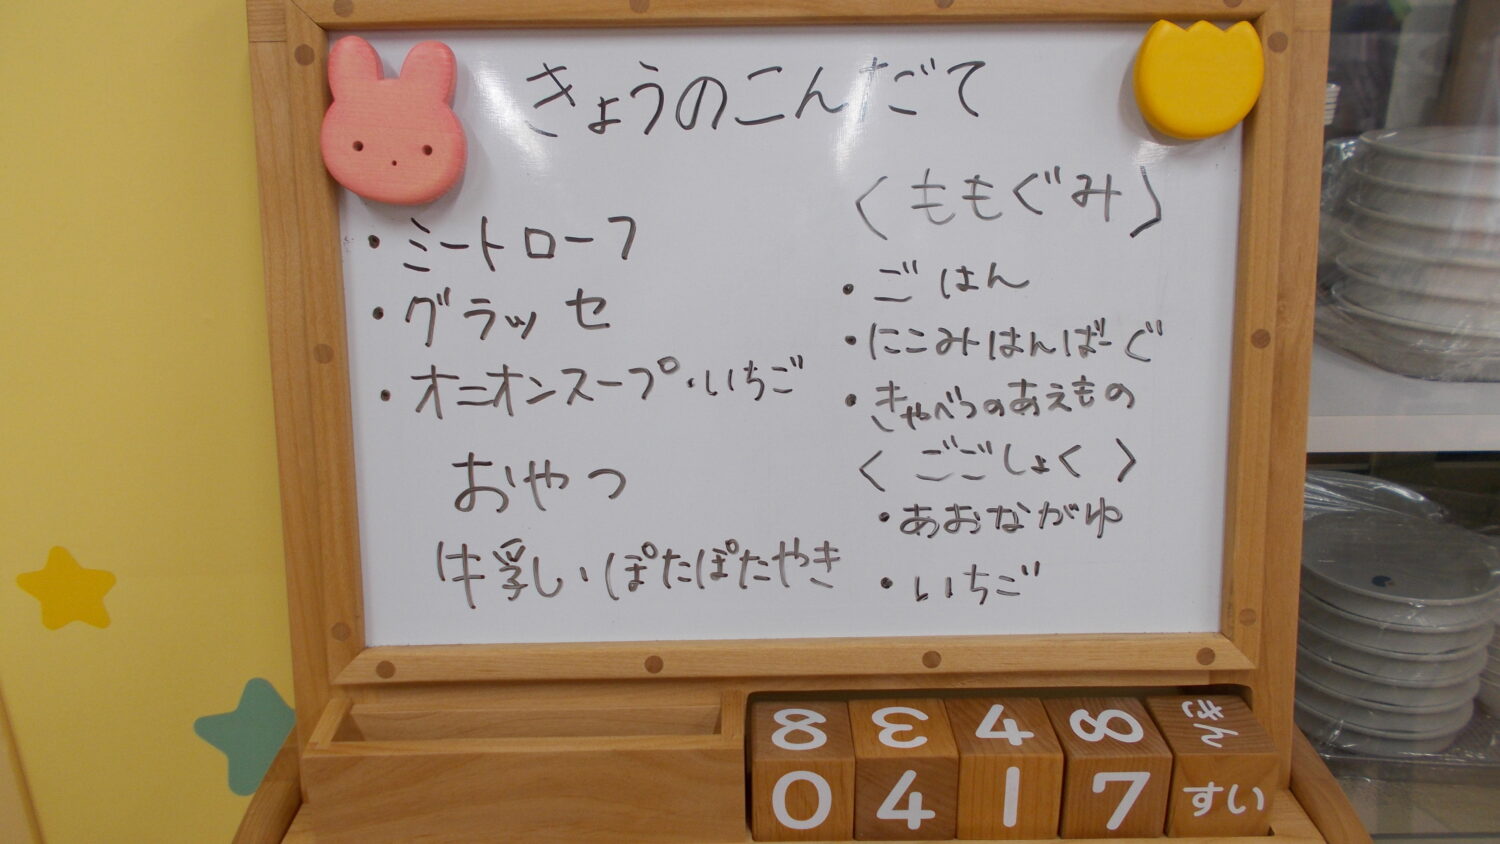 きょうのこんだて
・ミートローフ
・グラッセ
・オニオンスープ・いちご
おやつ
牛乳・ぽたぽたやき
〈ももぐみ〉
・ごはん
・にこみはんばーぐ
・きゃべつのあえもの
〈ごごしょく〉
・あおながゆ
・いちご
8 3 4 8 きん
0 4 1 7 すい